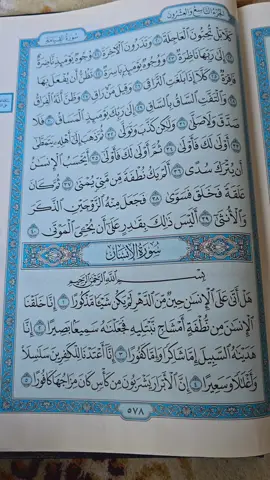 الجزء التاسع والعشرون
سورة القيامة
كلا بل تحبون العاجلة ٢٠ وتذرون الآخرة ٢١ وجوه يومئذ ناضرة
٢٢ إلى ربها ناظرة ٢٣ ووجوه يومئذ باسرة ٢٤ تظن أن يفعل بها
فاقرة ٢٥ كلا إذا بلغت التراقي ٢٦ وقيل من راق ٢٧ وظن أنه الفراق
٢٨ والتفت الساق بالساق ٢٩ إلى ربك يومئذ المساق ٣٠ فلا
صدق ولا صلى ٣١ ولكن كذب وتولى ٣٢ ثم ذهب إلى أهله يتمطى
٣٣ أولى لك فأولى ٣٤ ثم أولى لك فأولى ٣٥ أيحسب الإنسان
أن يترك سدى ٣٦ ألم يك نطفة من مني يمنى ٣٧ ثم كان
علقة فخلق فسوى ٣٨ فجعل منه الزوجين الذكر
والأنثى ٣٩ أليس ذلك بقادر على أن يحيي الموتى ٤٠
سورة الإنسان
بسم الله الرحمن الرحيم
هل أتى على الإنسان حين من الدهر لم يكن شيئا مذكورا ١ إنا خلقنا
الإنسان من نطفة أمشاج نبتليه فجعلناه سميعا بصيرا ٢ إنا
هديناه السبيل إما شاكرا وإما كفورا ٣ إنا أعتدنا للكافرين سلاسلا
وأغلالا وسعيرا ٤ إن الأبرار يشربون من كأس كان مزاجها كافورا ٥
٥٧٨